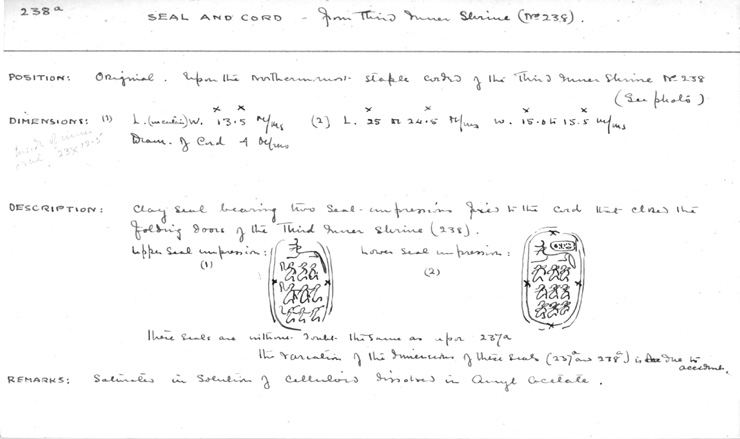 238ᵃ
SEAL AND CORD - from Third Inner Shrine (Nº 238).
POSITION: Original. Upon the northernmost staple cord of the Third Inner Shrine Nº 238
(See photo)
DIMENSIONS: (1) L. W. 13.5 M/ms (2) L. 25 24.5 M/ms W. 15.0 15.5 M/ms
Inside of
23 x 15.5
Diam. of Cord 4 M/ms
DESCRIPTION: Clay seal bearing two seal-impressions fixed to the cord that closed the
folding doors of the Third Inner Shrine (238).
Upper Seal impression: Lower Seal impression:
(1) (2)
These seals are without doubt the same as upon 237a
the variation of the dimensions of these seals (237ᵃ and 238ᵃ) is due to accident.
REMARKS: Saturated in Solution of Celluloid dissolved in Amyl acetate.